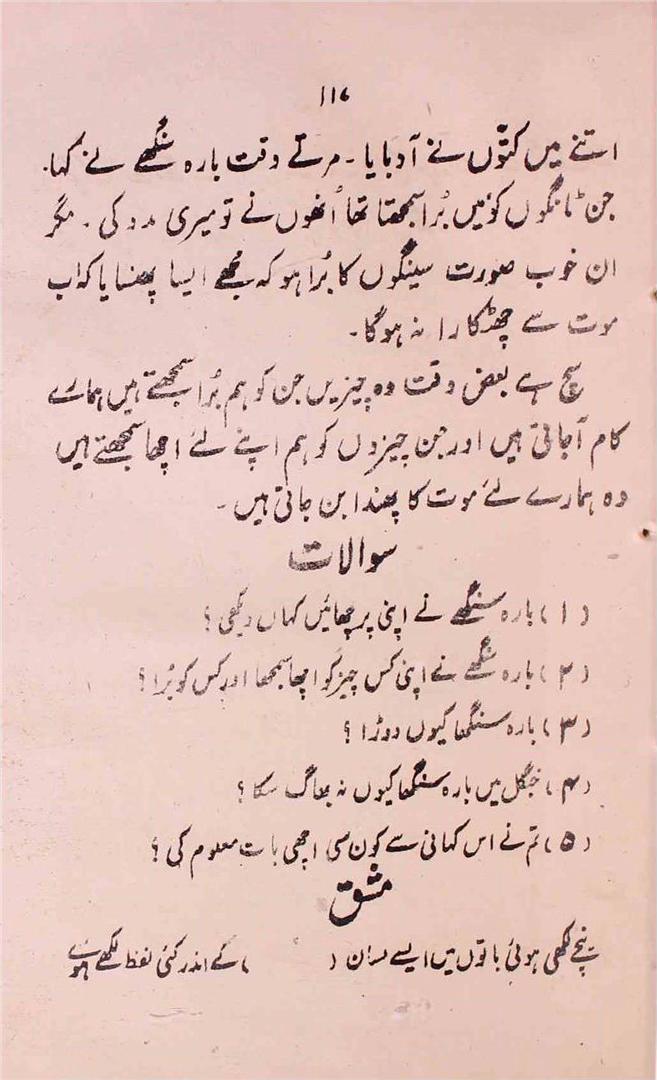 ۱۱۶
اتنے میں کتّوں نے آدبایا۔ مرتے وقت بارہ سُنگھے نے کہا۔
جن ٹانگوں کو میں بُرا سمجھتا تھا اُنھوں نے تو میری مدد کی۔ مگر
ان خوب صورت سینگوں کا بُرا ہو کہ مُجھے ایسا پھنسایا کہ اب
موت سے چھٹکارا نہ ہوگا۔
سچ ہے بعض وقت وہ چیزیں جن کو ہم بُرا سمجھتے ہیں ہمارے
کام آجاتی ہیں اور جن چیزوں کو ہم اپنے لئے اچھا سمجھتے ہیں
وہ ہمارے لئے موت کا پھندا بن جاتی ہیں۔
سوالات
(۱) بارہ سنگھے نے اپنی پرچھائیں کہاں دیکھی؟
(۲) بارہ سنگھے نے اپنی کس چیز کو اچھا سمجھا اور کس کو بُرا؟
(۳) بارہ سنگھا کیوں دوڑا؟
(۴) جنگل میں بارہ سنگھا کیوں نہ بھاگ سکا؟
(۵) تم نے اس کہانی سے کون سی اچھی بات معلوم کی؟
مشق
نیچے لکھی ہوئی باتوں میں ایسے نشان (      ) کے اندر کئی لفظ لکھے ہوئے